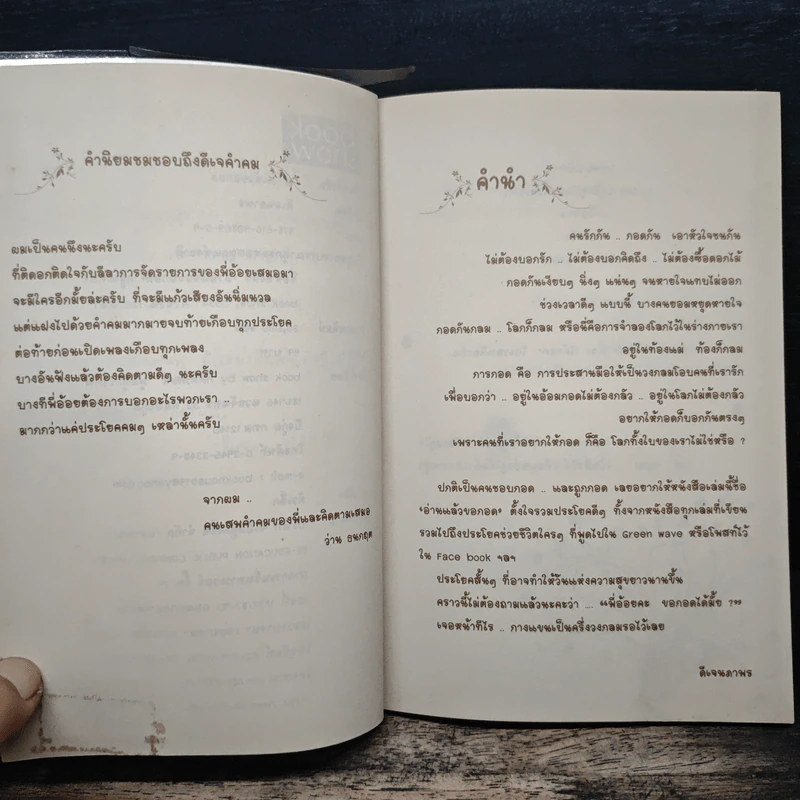 คำนิยมชมชอบถึงดีเจคำคม
ผมเป็นคนนึงนะครับ
ที่ติดอกติดใจกับลีลาการจัดรายการของพี่อ้อยเสมอมา
จะมีใครอีกมั้ยล่ะครับ ที่จะมีแก้วเสียงอันนิ่มนวล
แต่แฝงไปด้วยคำคมมากมายจบท้ายเกือบทุกประโยค
ต่อท้ายก่อนเปิดเพลงเกือบทุกเพลง
บางอันฟังแล้วต้องคิดตามดีๆ นะครับ
บางทีพี่อ้อยต้องการบอกอะไรพวกเรา ..
มากกว่าแค่ประโยคคมๆ เหล่านั้นครับ
จากผม ..
คนเสพคำคมของพี่และคิดตามเสมอ
ว่าน ธนกฤต
คำนำ
คนรักกัน .. กอดกัน เอาหัวใจชนกัน
ไม่ต้องบอกรัก .. ไม่ต้องบอกคิดถึง .. ไม่ต้องซื้อดอกไม้
กอดกันเงียบๆ นิ่งๆ แน่นๆ จนหายใจแทบไม่ออก
ช่วงเวลาดีๆ แบบนี้ บางคนยอมหยุดหายใจ
กอดกันกลม .. โลกก็กลม หรือนี่คือการจำลองโลกไว้ในร่างกายเรา
อยู่ในท้องแม่ ท้องก็กลม
การกอด คือ การประสานมือให้เป็นวงกลมโอบคนที่เรารัก
เพื่อบอกว่า .. อยู่ในอ้อมกอดไม่ต้องกลัว .. อยู่ในโลกไม่ต้องกลัว
อยากให้กอดก็บอกกันตรงๆ
เพราะคนที่เราอยากให้กอด ก็คือ โลกทั้งใบของเราไม่ใช่หรือ ?
ปกติเป็นคนชอบกอด .. และถูกกอด เลยอยากให้หนังสือเล่มนี้ชื่อ
'อ่านแล้วขอกอด' ตั้งใจรวมประโยคดีๆ ทั้งจากหนังสือทุกเล่มที่เขียน
รวมไปถึงประโยคช่วยชีวิตใครๆ ที่พูดไปใน Green wave หรือโพสท์ไว้
ใน Face book ฯลฯ
ประโยคสั้นๆ ที่อาจทำให้วันแห่งความสุขยาวนานขึ้น
คราวนี้ไม่ต้องถามแล้วนะคะว่า .... "พี่อ้อยคะ ขอกอดได้มั้ย ?"
เจอหน้าทีไร .. กางแขนเป็นครึ่งวงกลมรอไว้เลย
ดีเจนภาพร